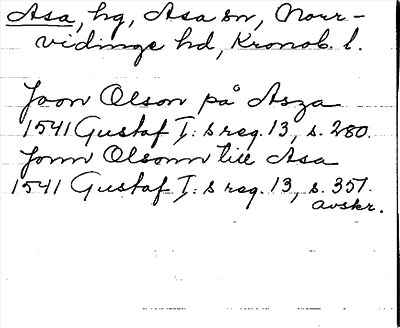 Asa, hg, Asa sn, Norr-
vidinge hd, Kronob. l.
Joon Olson på Asza
1541 Gustaf I:s reg. 13, s. 280.
Jonn Olsonn till Asa
1541 Gustaf I:s reg. 13, s. 351.
avskr.